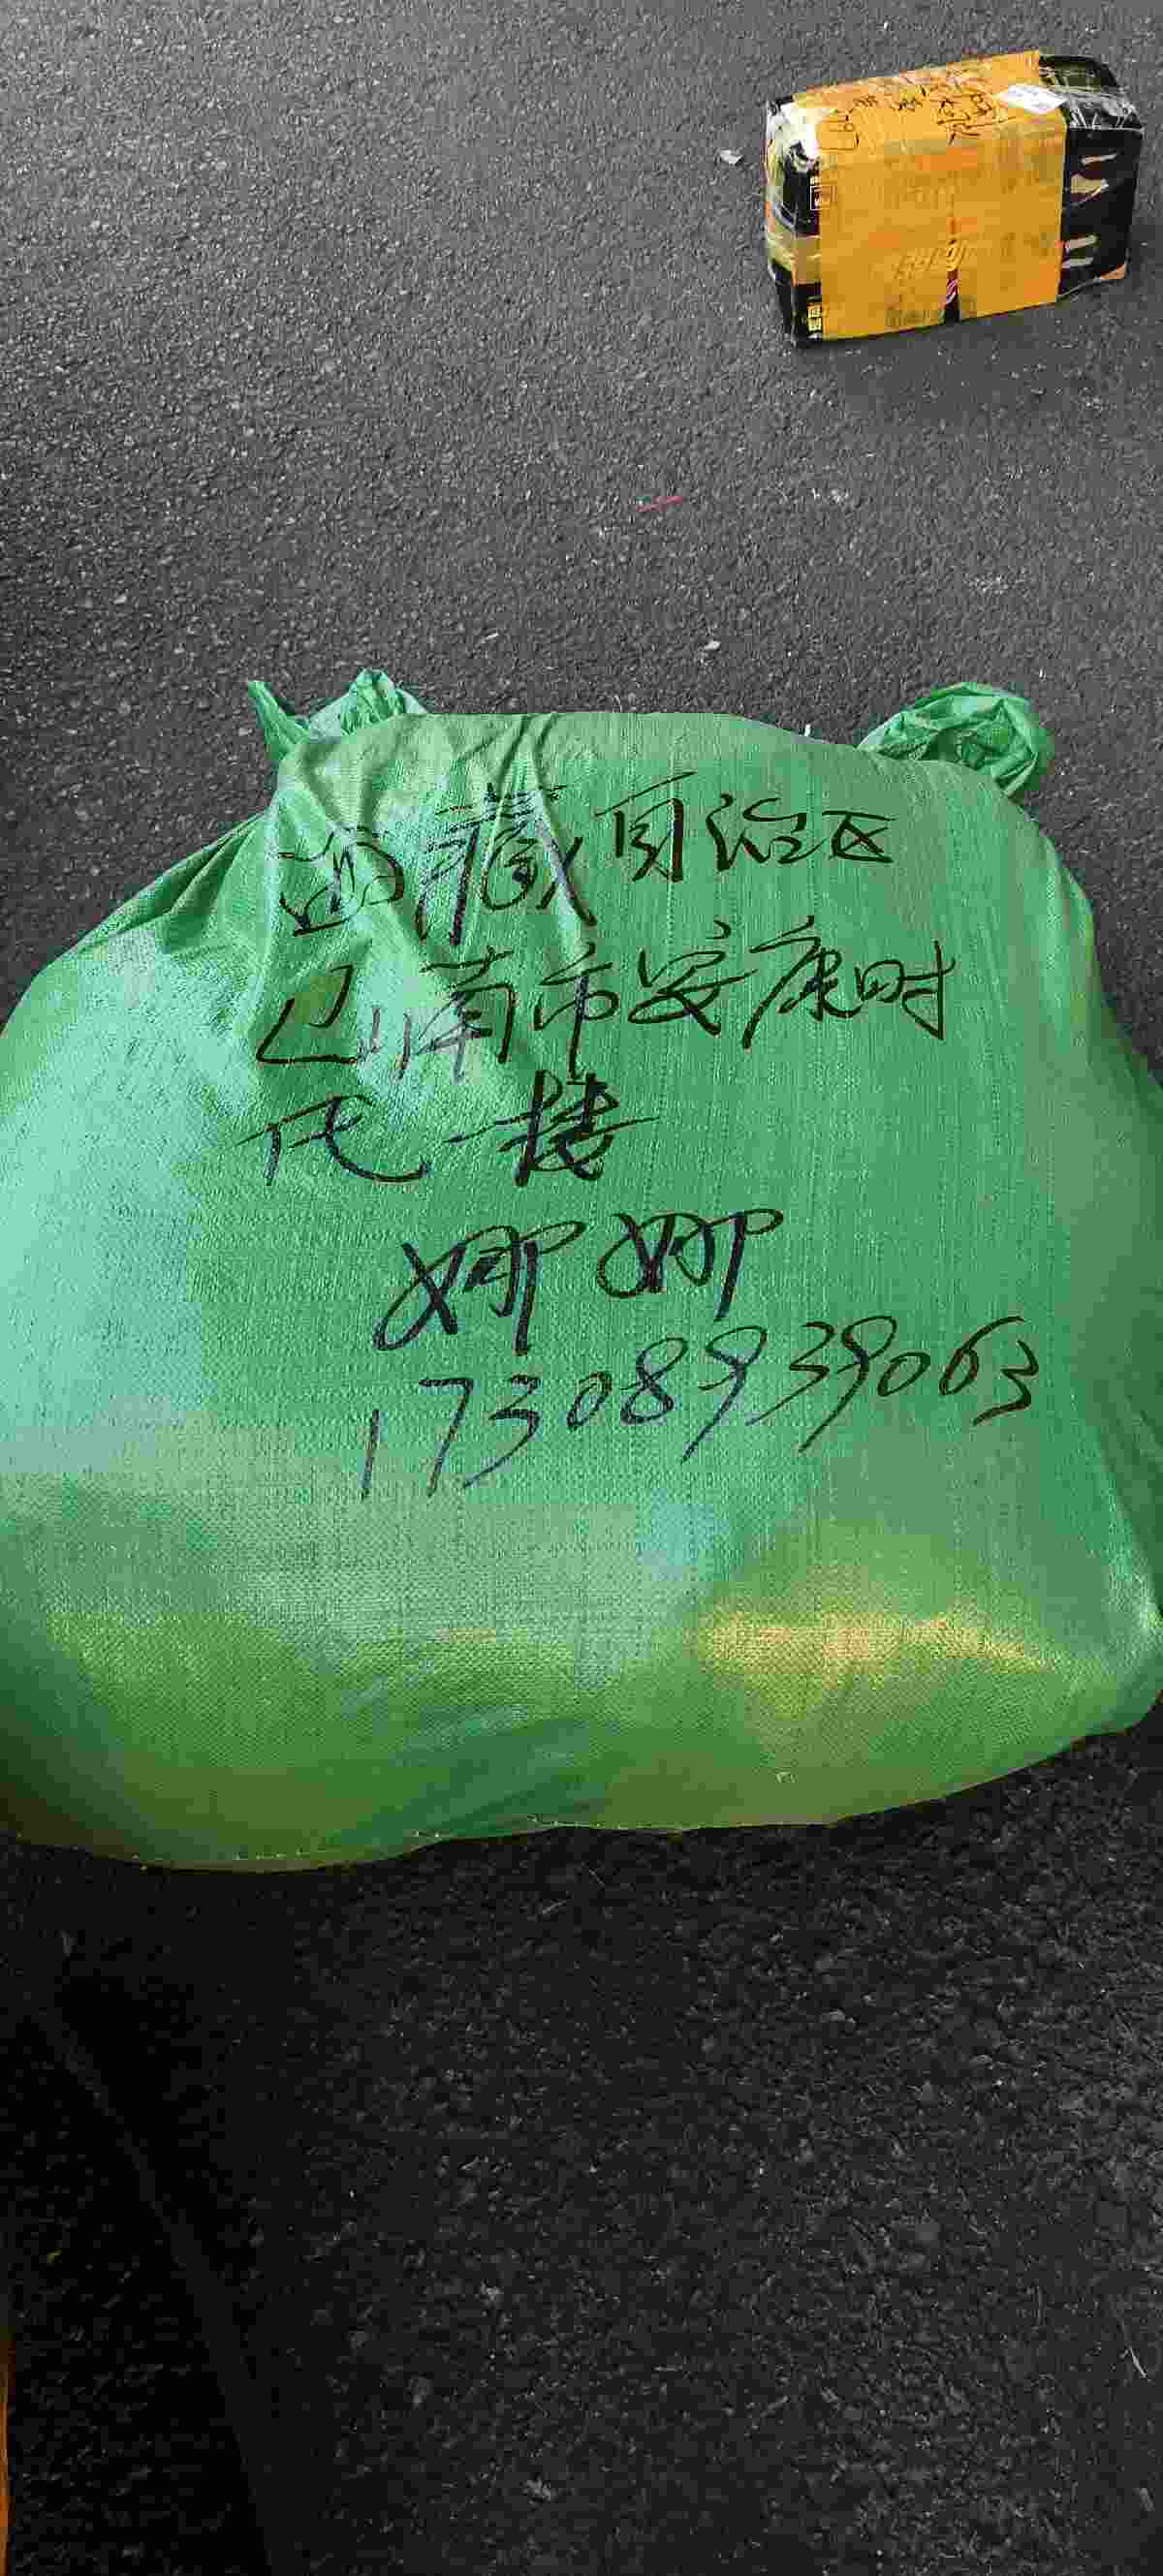 西藏自治区
山南市安康时
代一楼
娜娜
17308939063